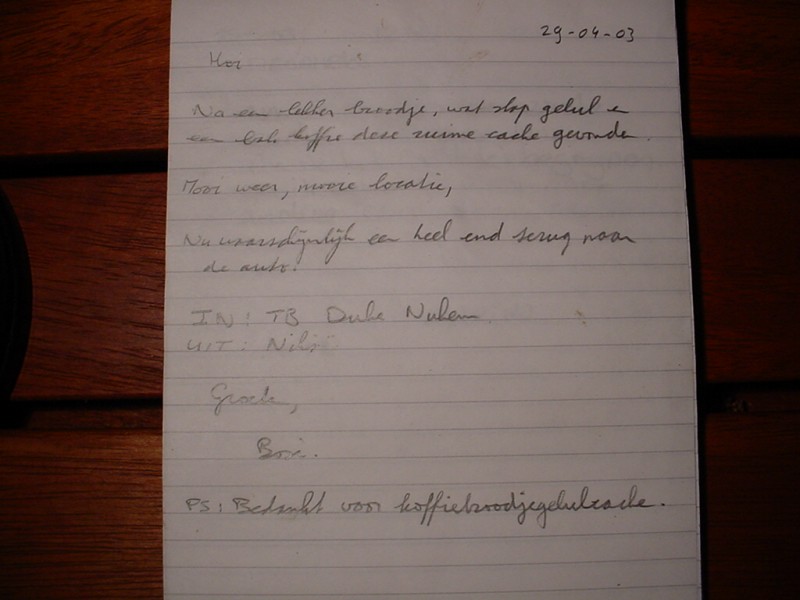 29-04-03
Hoi
Na een lekker broodje, wat slap gelul en
een bak koffie deze ruime cache gevonden.
Mooi weer, mooie locatie,
Nu waarschijnlijk een heel end terug naar
de auto.
IN: TB Duke Nukem
UIT: Niks
Groeten,
PS: Bedankt voor koffiebroodjegelulcache.